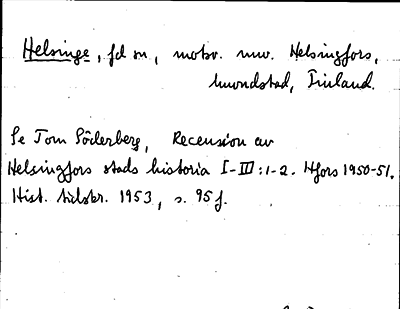 Helsinge, fd sn, motsv. nuv. Helsingfors,
huvudstad, Finland.
Se Tom Söderberg, Recension av
Helsingfors stads historia I-III:1-2. Hfors 1950-51.
Hist. tidskr. 1953, s. 95 f.